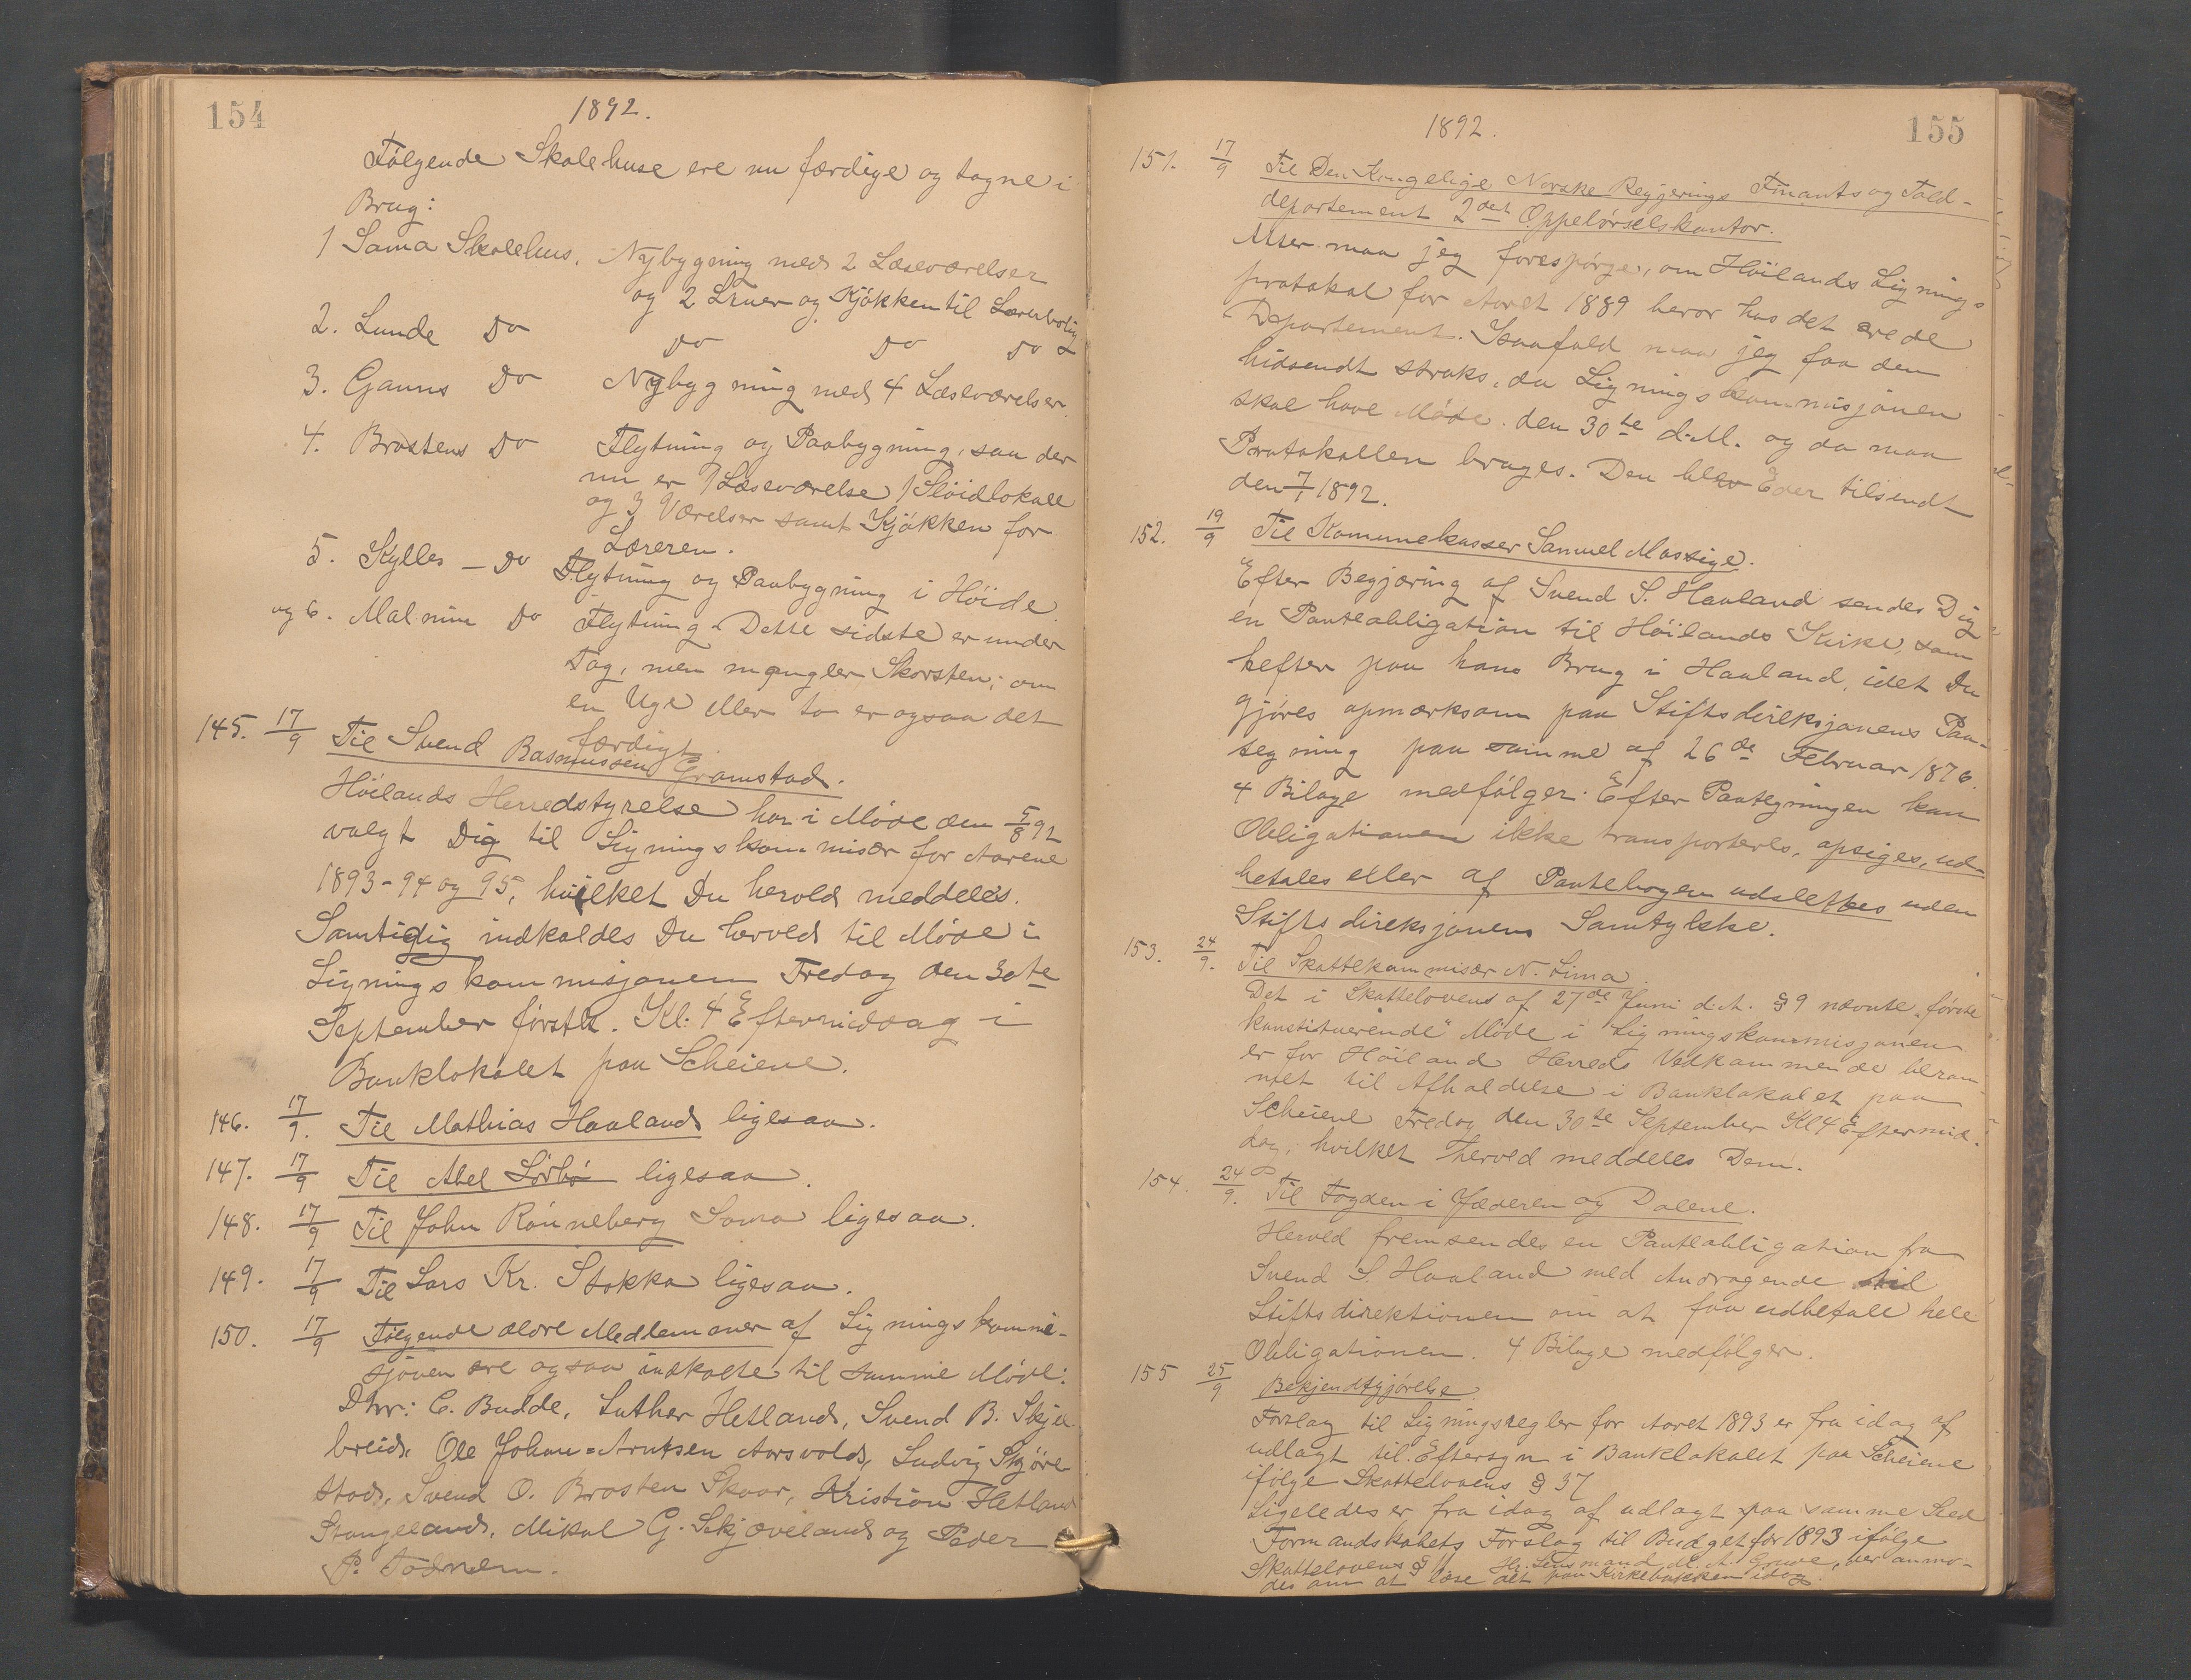 154
1892.
Følgende Skolehuse ere nu færdige og tagne i
Brug:
1 Soma Skolehus. Nybygning med 2 Læseværelser
og 2 Stuer og Kjøkken til Lærerbolig
2. Lunde Do Do Do Do
3. Ganns Do Nybygning med 4 Læseværelser.
4. Brostens Do Flytning og Paabygning, saa der
nu er 1 Læseværelse 1 Sløidlokale
og 3 Værelser samt Kjøkken for
Læreren.
5. Kylles – Do Flytning og Paabygning i Høide
og 6. Malmim Do Flytning. Dette sidste er under
Tag, men mangler Skorsten; om
en Uge eller to er ogsaa det
færdigt.
145. 17/9 Til Svend Rasmussen Gramstad.
Høilands Herredstyrelse har i Møde den 5/8 92
valgt Dig til Ligningskommisær for Aarene
1893-94 og 95, hvilket Du herved meddeles.
Samtidig indkaldes Du herved til Møde i
Ligningskommisjonen Fredag den 30te
September førstk. Kl: 4 Eftermiddag i
Banklokalet paa Scheiene.
146. 17/9. Til Mathias Haaland ligesaa.
147. 17/9 Til Abel Sørbø ligesaa.
148. 17/9 Til John Rönneberg Soma ligesaa.
149. 17/9 Til Lars Kr. Stokka ligesaa.
150. 17/9 Følgende ældre Medlemmer af Ligningskommi-
sjonen ere ogsaa indkaldte til samme Møde:
Dhrr: C. Budde, Luther Hetland, Svend B. Skjæ-
breid, Ole Johan=Arntsen Aarsvold, Ludvig Skjøre-
stad, Svend O. Brosten Skaar, Kristian Hetland
Stangeland, Mikal G. Skjæveland og Peder
P. Todnem.
155
1892.
151. 17/9 Til Den Kongelige Norske Regjerings Finants og Told-
departement 2det Oppebørselskontor.
maa jeg forespørge, om Høilands Lignings
protokol for Aaret 1889 beror hos det ærede
Departement. Isaafald maa jeg faa den
hidsendt straks, da Ligningskommisjonen
skal have Møde den 30te d.M. og da maa
Protokollen bruges. Den blev Eder tilsendt
den 7/1 1892.
152. 19/9 Til Komunekasser Samuel Mossige.
Efter Begjæring af Svend S. Haaland sendes Dig
en Panteobligation til Høilands Kirke, som
hefter paa hans Brug i Haaland, idet Du
gjøres opmærksom paa Stiftsdireksjonens Paa-
tegning paa samme af 26de Februar 1876.
4 Bilage medfølger. Efter Paategningen kan
Obligationen ikke transporteres, opsiges, ud-
betales eller af Pantebogen udslettes uden
Stiftsdireksjonens Samtykke.
153. 24/9. Til Skattekommisær N. Lima
Det i Skattelovens af 27de Juni d.A. § 9 nævnte „første
konstituerende" Møde i Ligningskommisjonen
er for Høiland Herreds Vedkommende beram-
met til Afholdelse i Banklokalet paa
Scheiene Fredag den 30te September Kl 4 Eftermid-
dag, hvilket herved meddeles Dem.
154. 24/9. Til Fogden i Jæderen og Dalene.
Herved fremsendes en Panteobligation fra
Svend S. Haaland med Andragende til
Stiftsdirektionen om at faa udbetale hele
Obligationen. 4 Bilage medfølger.
155 25/9 Bekjendtgjørelse.
Forslag til Ligningsregler for Aaret 1893 er fra idag af
udlagt til Eftersyn i Banklokalet paa Scheiene
ifølge Skattelovens § 37
Ligeledes er fra idag af udlagt paa samme Sted
Formandskabets Forslag til Budget for 1893 ifølge
Skattelovens § Hr. Lensmand M. A. Grude, der anmo-
des om at læse det paa Kirkebakken idag.